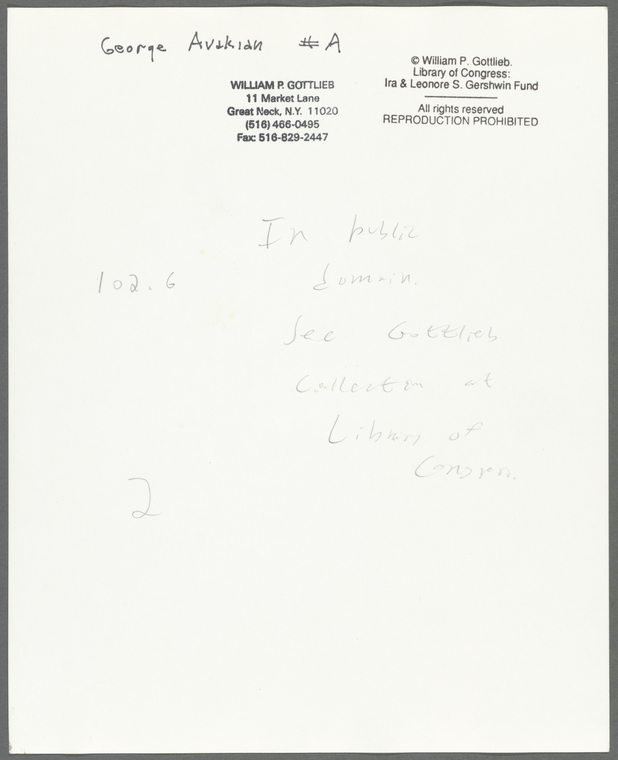 George Avakian #A
© William P. Gottlieb.
Library of Congress:
Ira & Leonore S. Gershwin Fund
All rights reserved
REPRODUCTION PROHIBITED
WILLIAM P. GOTTLIEB
11 Market Lane
Great Neck, N.Y. 11020
(516) 466-0495
Fax: 516-829-2447
In public
domain.
102.6
See Gottlieb
Collection at
Library of
Congress.
2